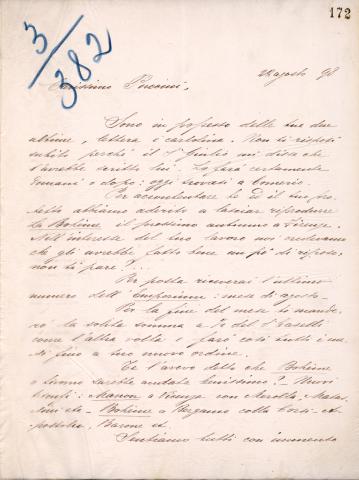 172
3/382
22 agosto 98
Carissimo Puccini,
Sono in possesso delle tue due
ultime, lettera e cartolina. Non ti risposi
subito perchè il Sr Giulio mi disse che
t'avrebbe scritto lui. Lo farà certamente
domani o dopo: oggi trovasi a Cernobbio.
Per accontentare te ed il tuo pro-
tetto abbiamo aderito a lasciar riprodurre
La Bohème il prossimo autunno a Firenze.
Nell'interesse del tuo lavoro noi credevamo
che gli avrebbe fatto bene un po' di riposo,
non ti pare?...
Per posta riceverai l'ultimo
numero dell'Emporium: mese di agosto.
Per la fine del mese ti mande-
rò la solita somma a 1/2 del Sr Vasetti
come l'altra volta e farò così tutti i me-
si fino a tuo nuovo ordine.
Te l'avevo detto che Bohème
a Livorno sarebbe andata benissimo? - Nuovi
contratti: Manon a Firenze con
Bohème a Bergamo colla
Barone et
Sentiamo tutti con